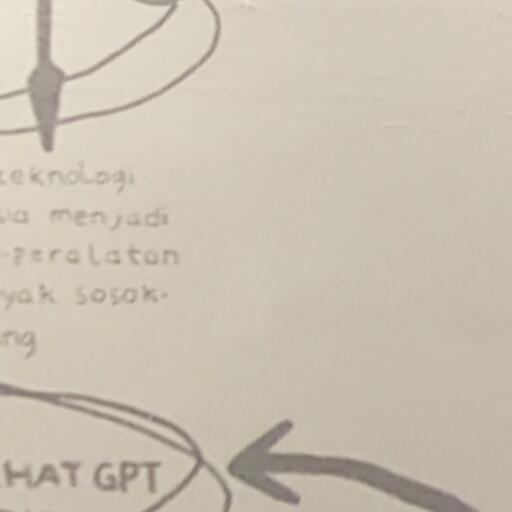 teknologi
menjadi
-peralatan
sosok-
HAT GPT